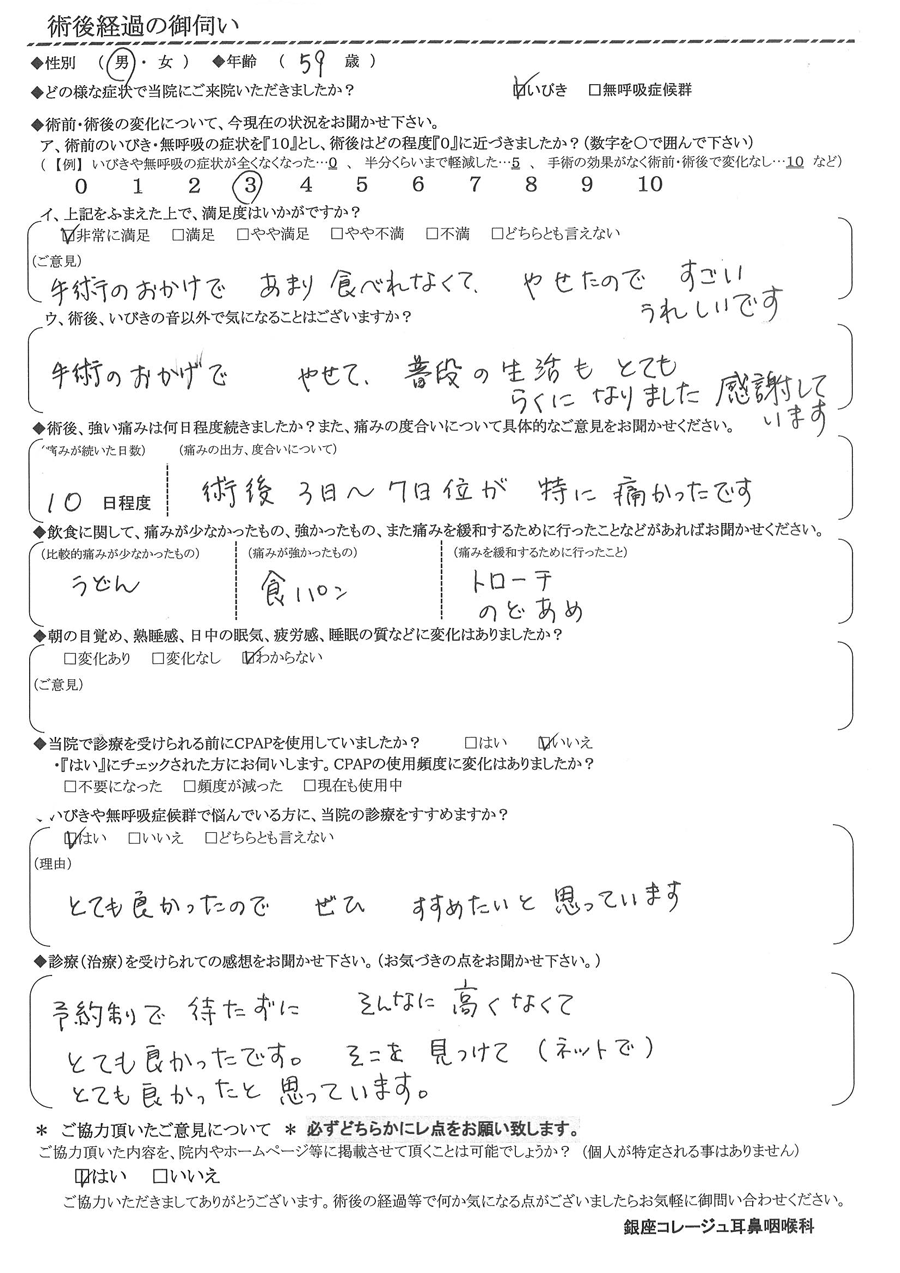 術後経過の御伺い
◆性別 ( 男 ・ 女 ) ◆年齢 ( 59 歳 )
◆どの様な症状で当院にご来院いただきましたか? ☑いびき □無呼吸症候群
◆術前・術後の変化について、今現在の状況をお聞かせ下さい。
ア、術前のいびき・無呼吸の症状を『10』とし、術後はどの程度『0』に近づきましたか?(数字を○で囲んで下さい)
(【例】 いびきや無呼吸の症状が全くなくなった…0 、 半分くらいまで軽減した…5 、 手術の効果がなく術前・術後で変化なし…10 など)
0 1 2 3 4 5 6 7 8 9 10
イ、上記をふまえた上で、満足度はいかがですか?
☑非常に満足 □満足 □やや満足 □やや不満 □不満 □どちらとも言えない
(ご意見)
手術のおかけで あまり 食べれなくて、 やせたので すごい
うれしいです
ウ、術後、いびきの音以外で気になることはございますか?
手術のおかげで やせて、 普段の生活も とても
らくに なりました 感謝して
います
◆術後、強い痛みは何日程度続きましたか?また、痛みの度合いについて具体的なご意見をお聞かせください。
(痛みが続いた日数) (痛みの出方、度合いについて)
10 日程度 術後 3日〜7日位が 特に 痛かったです
◆飲食に関して、痛みが少なかったもの、強かったもの、また痛みを緩和するために行ったことなどがあればお聞かせください。
(比較的痛みが少なかったもの) (痛みが強かったもの) (痛みを緩和するために行ったこと)
うどん 食パン トローチ
のどあめ
◆朝の目覚め、熟睡感、日中の眠気、疲労感、睡眠の質などに変化はありましたか?
□変化あり □変化なし ☑わからない
(ご意見)
◆当院で診療を受けられる前にCPAPを使用していましたか? □はい ☑いいえ
・『はい』にチェックされた方にお伺いします。CPAPの使用頻度に変化はありましたか?
□不要になった □頻度が減った □現在も使用中
いびきや無呼吸症候群で悩んでいる方に、当院の診療をすすめますか?
☑はい □いいえ □どちらとも言えない
(理由)
とても良かったので ぜひ すすめたいと 思っています
◆診療(治療)を受けられての感想をお聞かせ下さい。(お気づきの点をお聞かせ下さい。)
予約制で 待たずに そんなに 高くなくて
とても良かったです。 そこを 見つけて (ネットで)
とても良かったと 思っています。
＊ ご協力頂いたご意見について ＊ 必ずどちらかにレ点をお願い致します。
ご協力頂いた内容を、院内やホームページ等に掲載させて頂くことは可能でしょうか? (個人が特定される事はありません)
☑はい □いいえ
ご協力いただきましてありがとうございます。術後の経過等で何か気になる点がございましたらお気軽に御問い合わせください。
銀座コレージュ耳鼻咽喉科